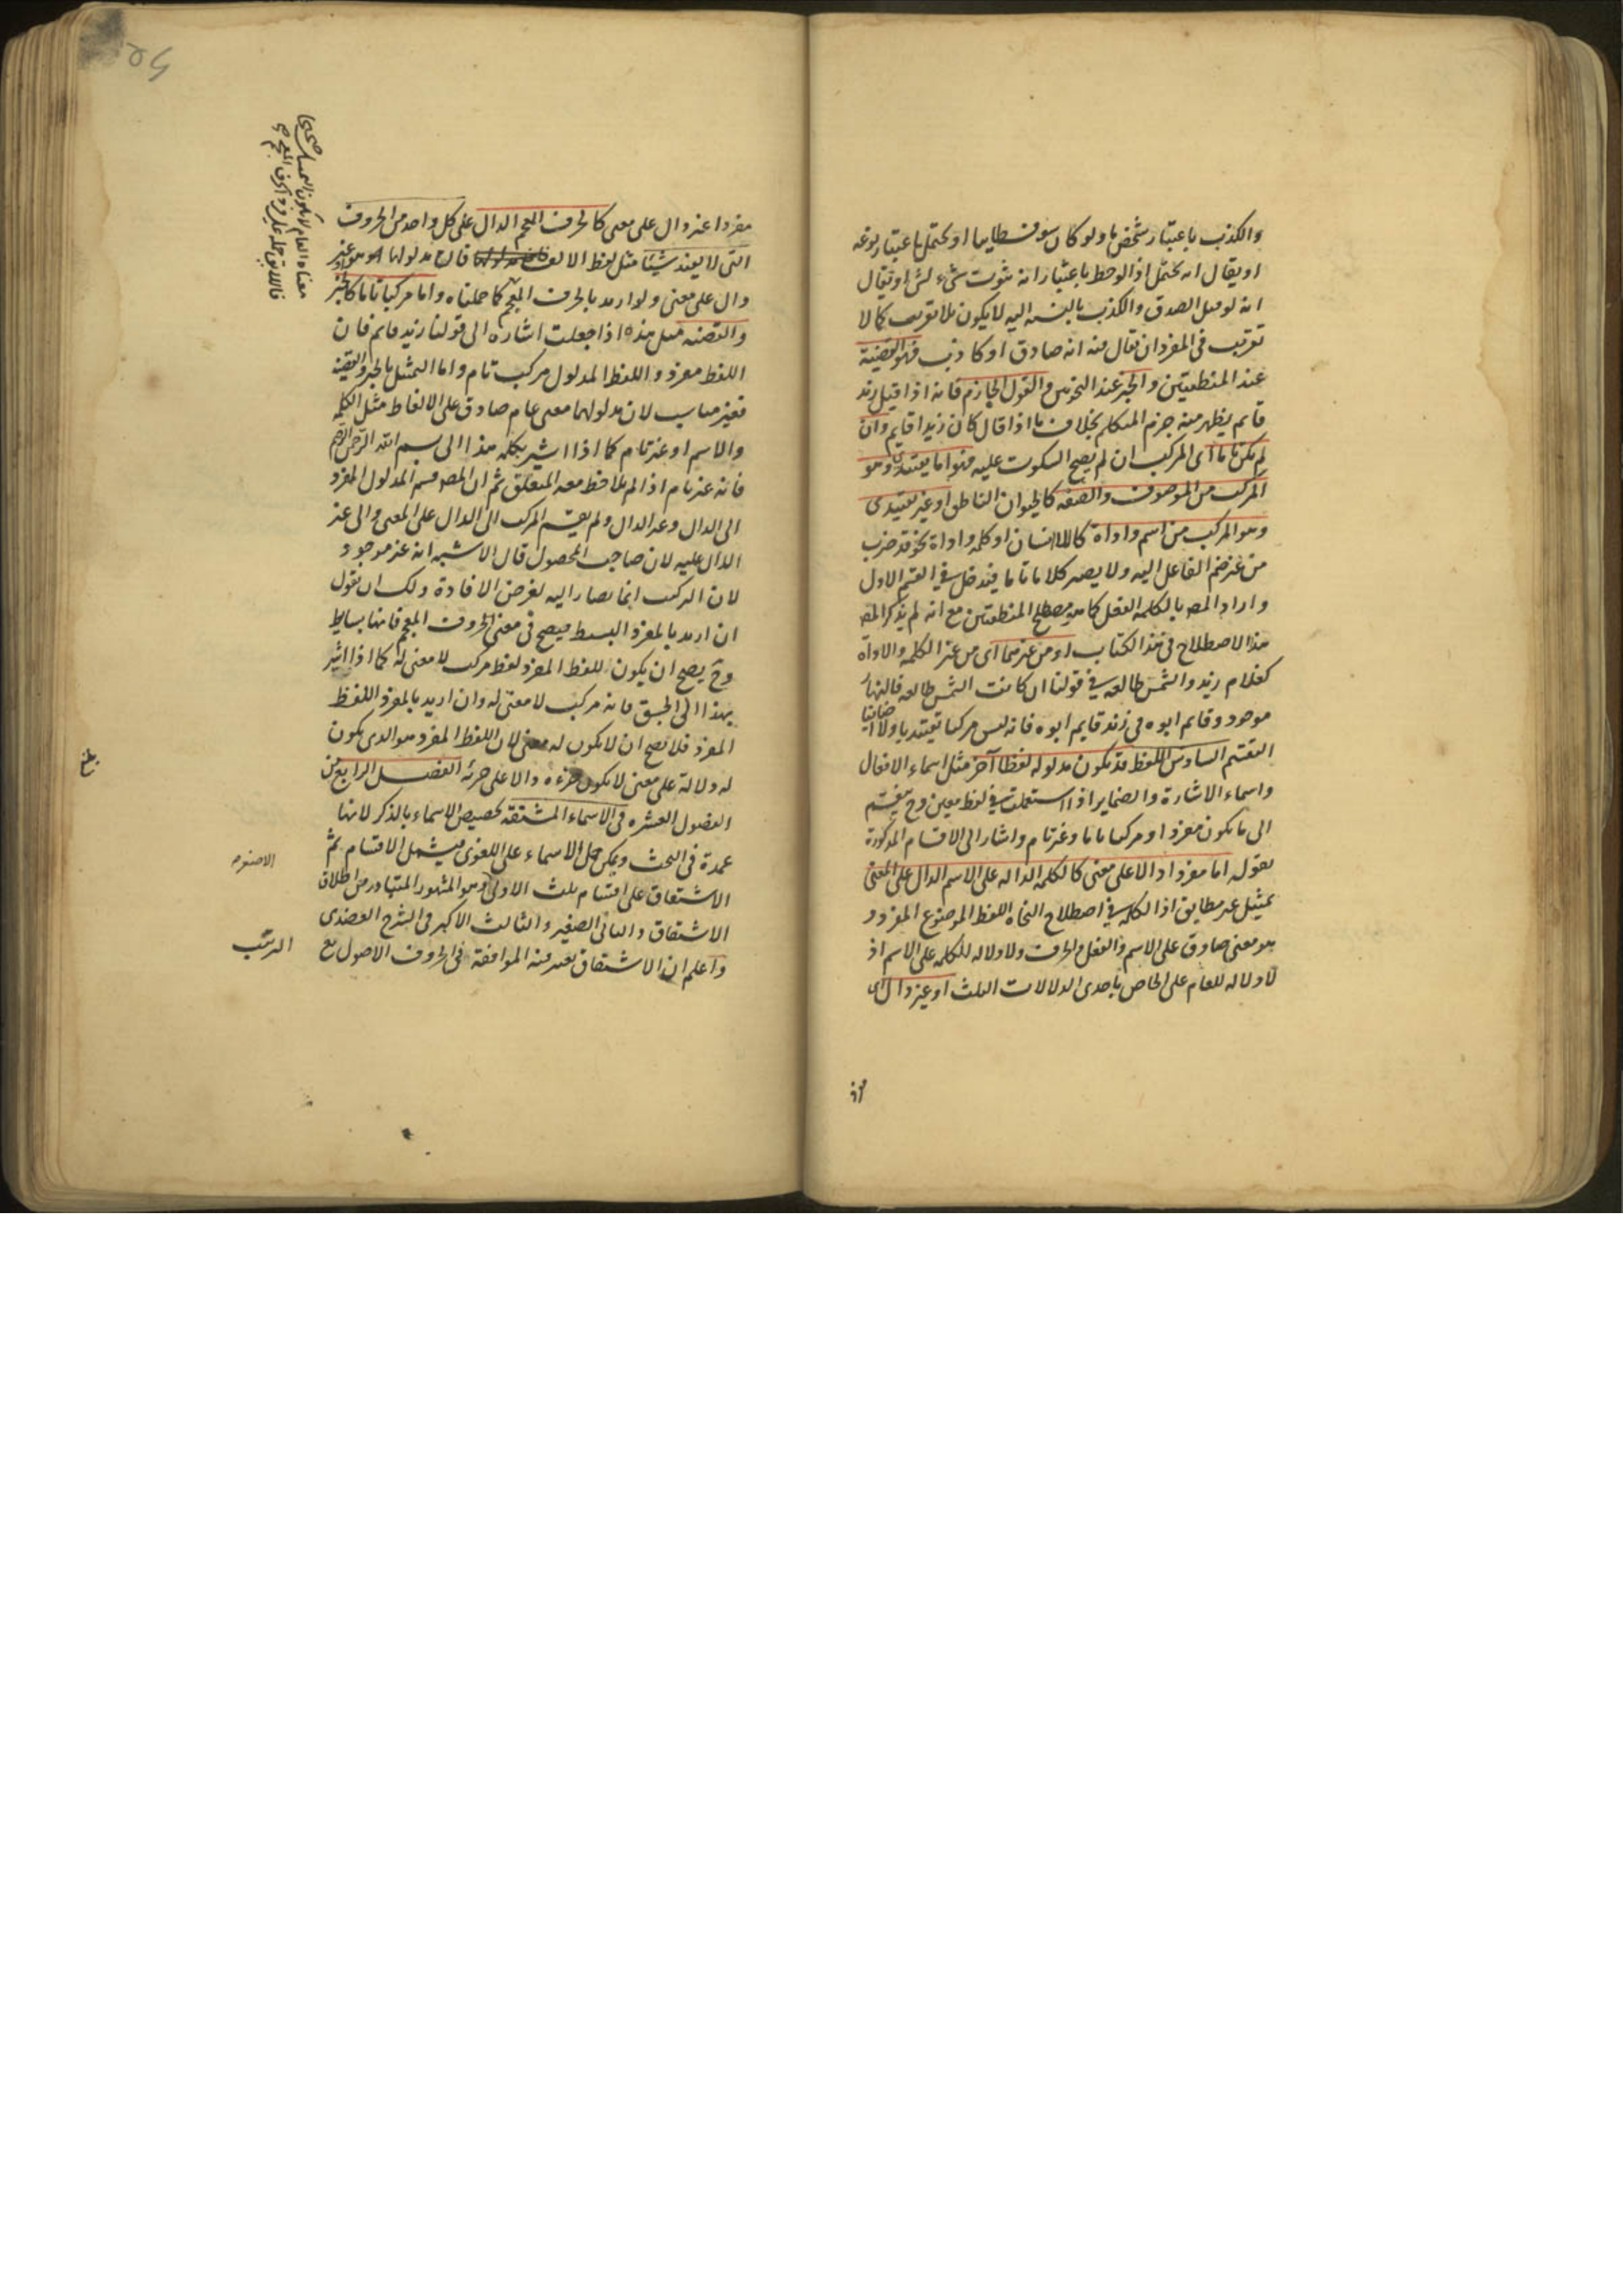 والكذب باعتبار شخص ما ولو كان سوفسطائيا او يحتمل باعتبار نوعه
او يقال انه يحتمل اذا لوحظ باعتبار انه ثبوت شيء لشيء او يقال
انه لو قيل الصدق والكذب بالنسبة اليه لا يكون بلا تقريب كما لا
تقريب في المفرد ان يقال فيه انه صادق او كاذب فهو القضية
عند المنطقيين والخبر عند النحويين والقول الجازم فانه اذا قيل زيد
قايم يظهر منه جزم المتكلم بخلاف ما اذا قال كان زيدا قايم وان
لم يكن تاما اى المركب ان لم يصح السكوت عليه فهو اما تقييدي وهو
المركب من الموصوف والصفه كالحيوان الناطق او غير تقييدى
وهو المركب من اسم واداة كاللاانسان او كلمه واداة نحو قد ضرب
من غير ضم الفاعل اليه ولا يصير كلاما تاما فيدخل في القسم الاول
واراد المصـ بالكلمه الفعل كما هو مصطلح المنطقيين مع انه لم يذكر المصـ
هذا الاصطلاح في هذا الكتاب او من غيرهما اى من غير الكلمه والاداة
كغلام زيد والشمس طالعه في قولنا ان كانت الشمس طالعه فالنهار
موجود وقايم ابوه في زيد قايم ابوه فانه ليس مركبا تقييديا ولا
القسم السادس اللفظ قد يكون مدلوله لفظا آخر مثل اسماء الافعال
واسماء الاشارة والضماير اذا استعملت في لفظ معين وح ينقسم
الى ما يكون مفردا ومركبا تاما وغيرتام واشار الى الاقسام المذكورة
بقوله اما مفردا دالا على معنى كالكلمه الداله على الاسم الدال على المعنى
تمثيل غير مطابق اذ الكلمه في اصطلاح النحاه اللفظ الموضوع المفرد و
هو معنى صادق على الاسم والفعل والحرف ولا دلاله للكلمه على الاسم اذ
لا دلاله للعام على الخاص باحدى الدلالات الثلث او غير دال اى
مفردا غير دال على معنى كالحرف المعجم الدال على كل واحد من الحروف
التي لا يفيد شيئا مثل لفظ الالف فان مدلولها اه وهو غير
دال على معنى ولو اريد بالحرف المعجم كما حملناه واما مركبا تاما كالخبر
والقضيه مثل هذه اذا جعلت اشاره الى قولنا زيد قايم فان
اللفظ مفرد واللفظ المدلول مركب تام واما التمثيل بالخبر والقضيه
فغير مناسب لان مدلولهما معنى عام صادق على الالفاظ مثل الكلمه
والاسم او غير تام كما اذا اشير بكلمه هذا الى بسم الله الرحمن الرحيم
فانه غير تام اذا لم يلاحظ معه المتعلق ثم ان المصـ قسم المدلول المفرد
الى الدال وغير الدال ولم يقسم المركب الى الدال على المعنى والى غير
الدال عليه لان صاحب المحصول قال الاشبه انه غير موجود
لان التركيب انما يصار اليه لغرض الافادة ولك ان تقول
ان اريد بالمفرد البسيط فيصح في معنى الحروف المعجم فانها بسايط
وح يصح ان يكون للفظ المفرد لفظ مركب لا معنى له كما اذا اشير
بهذا الى الجسق فانه مركب لا معنى له وان اريد بالمفرد اللفظ
المفرد فلا يصح ان لا يكون له معنى لان اللفظ المفرد هو الذى يكون
له دلالة على معنى لا يكون جزءه دالا على جزئه الفصل الرابع من
الفصول العشره في الاسماء المشتقه تخصيص الاسماء بالذكر لانها
عمدة في البحث ويمكن حمل الاسماء على اللغوى فيشمل الاقسام ثم
الاشتقاق على اقسام ثلث الاول وهو المشهور المتبادر من اطلاق
الاصغر
الاشتقاق والثانى الصغير والثالث الاكبر في الشرح العضدى
واعلم ان الاشتقاق يعتبر فيه الموافقة في الحروف الاصول مع
الترتيب
بلغ